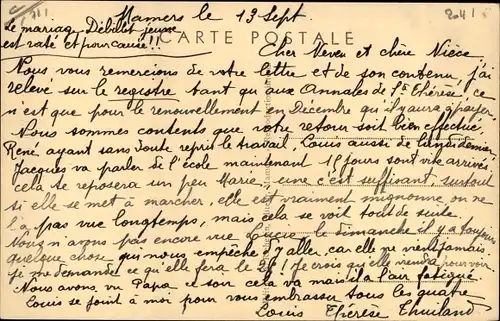 Mamers le 13 Sept.
2041
Le mariage Débillet jeune
est raté et pour cause!!
CARTE POSTALE
Cher Neveu et chère Nièce
Nous vous remercions de votre lettre et de son contenu, j'ai
relevé sur le registre tant qu'aux Annales de Ste Thérèse, ce
n'est que pour le renouvellement en Décembre qu'il y aura à payer
Nous sommes contents que votre retour soit bien effectué,
René ayant sans doute repris le travail, Louis aussi de lundi dernier
Jacques va parler de l'école maintenant 15 jours sont vite arrivés,
cela te reposera un peu Marie, une c'est suffisant, surtout
si elle se met à marcher, elle est vraiment mignonne, on ne
l'a pas vue longtemps, mais cela se voit tout de suite.
Nous n'avons pas encore vue le dimanche il y a toujours
quelque chose qui nous empêche d'y aller, car elle ne vient jamais
je me demande ce qu'elle fera le 26! Je crois qu'elle viendra pour voir
Nous avons vu Papa ce soir cela va mais il a l'air fatigué.
Louis se joint à moi pour vous embrasser tous les quatre
Louis Thérèse